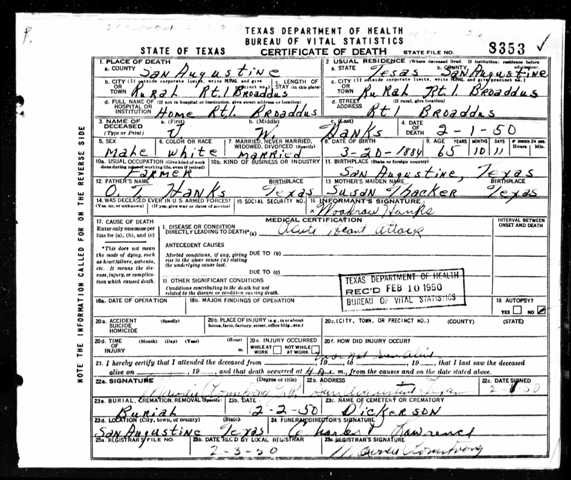 TEXAS DEPARTMENT OF HEALTH
BUREAU OF VITAL STATISTICS
STATE OF TEXAS CERTIFICATE OF DEATH STATE FILE NO. 8353
1. PLACE OF DEATH 2. USUAL RESIDENCE (Where deceased lived. If institution: residence before admission)
a. COUNTY San Augustine a. STATE Texas b. COUNTY San Augustine
b. CITY (If outside corporate limits, write RURAL and give precinct no.) OR TOWN Rural Rt.1. Broaddus c. LENGTH OF STAY (in this place) c. CITY (If outside corporate limits, write RURAL and give precinct no.) OR TOWN Rural Rt.1. Broaddus
d. FULL NAME OF (If not in hospital or institution, give street address or location) HOSPITAL OR INSTITUTION Home Rt.1. Broaddus d. STREET ADDRESS (If rural, give location) Rt.1 Broaddus
3. NAME OF DECEASED a. (First) J b. (Middle) W. c. (Last) Hanks 4. DATE OF DEATH 2-1-50
5. SEX Male 6. COLOR OR RACE White 7. MARRIED, NEVER MARRIED, WIDOWED, DIVORCED (Specify) Married 8. DATE OF BIRTH 3-20-1884 9. AGE YEARS 65 MONTHS 10 DAYS 11
10a. USUAL OCCUPATION Farmer 10b. KIND OF BUSINESS OR INDUSTRY 11. BIRTHPLACE (State or foreign country) San Augustine, Texas
12. FATHER'S NAME O. T. Hanks BIRTHPLACE Texas 13. MOTHER'S MAIDEN NAME Susan Thacker BIRTHPLACE Texas
14. WAS DECEASED EVER IN U.S. ARMED FORCES? 15. SOCIAL SECURITY NO. 16. INFORMANT'S SIGNATURE Woodrow Hanks
MEDICAL CERTIFICATION INTERVAL BETWEEN ONSET AND DEATH
17. CAUSE OF DEATH
Enter only one cause per line for (a), (b), and (c)
I. DISEASE OR CONDITION DIRECTLY LEADING TO DEATH*(a) Acute Heart Attack
ANTECEDENT CAUSES
*This does not mean the mode of dying, such as heart failure, asthenia, etc. It means the disease, injury, or complication which caused death.
Morbid conditions, if any, giving rise to the above cause (a) stating the underlying cause last.
DUE TO (b)
DUE TO (c)
II. OTHER SIGNIFICANT CONDITIONS
Conditions contributing to the death but not related to the disease or condition causing death.
TEXAS DEPARTMENT OF HEALTH
REC'D FEB 10 1950
BUREAU OF VITAL STATISTICS
18a. DATE OF OPERATION 18b. MAJOR FINDINGS OF OPERATION 19. AUTOPSY? YES NO
20a. ACCIDENT SUICIDE HOMICIDE 20b. PLACE OF INJURY (e.g., in or about home, farm, factory, street, office bldg., etc.) 20c. (CITY, TOWN, OR PRECINCT NO.) (COUNTY) (STATE)
20d. TIME OF INJURY (Month) (Day) (Year) (Hour) 20e. INJURY OCCURRED WHILE AT WORK NOT WHILE AT WORK 20f. HOW DID INJURY OCCUR?
21. I hereby certify that I attended the deceased from 19 to 19, that I last saw the deceased
alive on 19, and that death occurred at m., from the causes and on the date stated above.
22a. SIGNATURE (Degree or title) 22b. ADDRESS 22c. DATE SIGNED
23a. BURIAL, CREMATION, REMOVAL (Specify) Burial 23b. DATE 2-2-50 23c. NAME OF CEMETERY OR CREMATORY Dickerson
23d. LOCATION (City, town, or county) (State) San Augustine Texas 24. FUNERAL DIRECTOR'S SIGNATURE Lawrence
25a. REGISTRAR'S FILE NO. 25b. DATE REC'D BY LOCAL REGISTRAR 2-3-50 25c. REGISTRAR'S SIGNATURE
NOTE THE INFORMATION CALLED FOR ON THE REVERSE SIDE